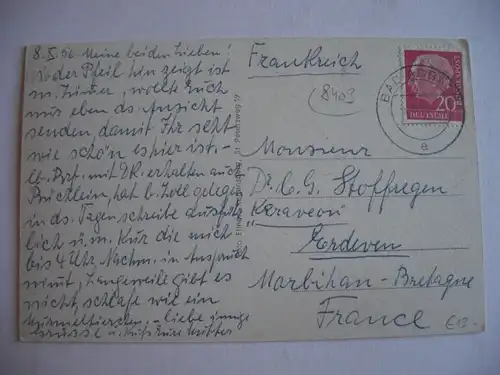 8.5.56. Meine beiden Lieben!
Wo der Pfeil hin zeigt ist
m. Zimmer, wollte Euch
nur eben ds Ansicht
senden, damit Ihr seht
wie schön es hier ist. -
lb. Brf. mit DR. erhalten auch
Brieflein, hat b. Zoll gelegen
in ds. Tagen schreibe ausführ
lich ü. m. Kur die mich
bis 4 Uhr Nachm. in Anspruch
nimmt, Langeweile gibt es
nicht, schlafe wie ein
Murmeltierchen. - liebe innige
Grüsse u. Mutter
Frankreich
8409
Monsieur
Dr. C. G. Stoffregen
Keraveon
Erdeven
Morbihan - Bretagne
France
DEUTSCHE
BUNDESPOST
20
BAD
a
€12.-